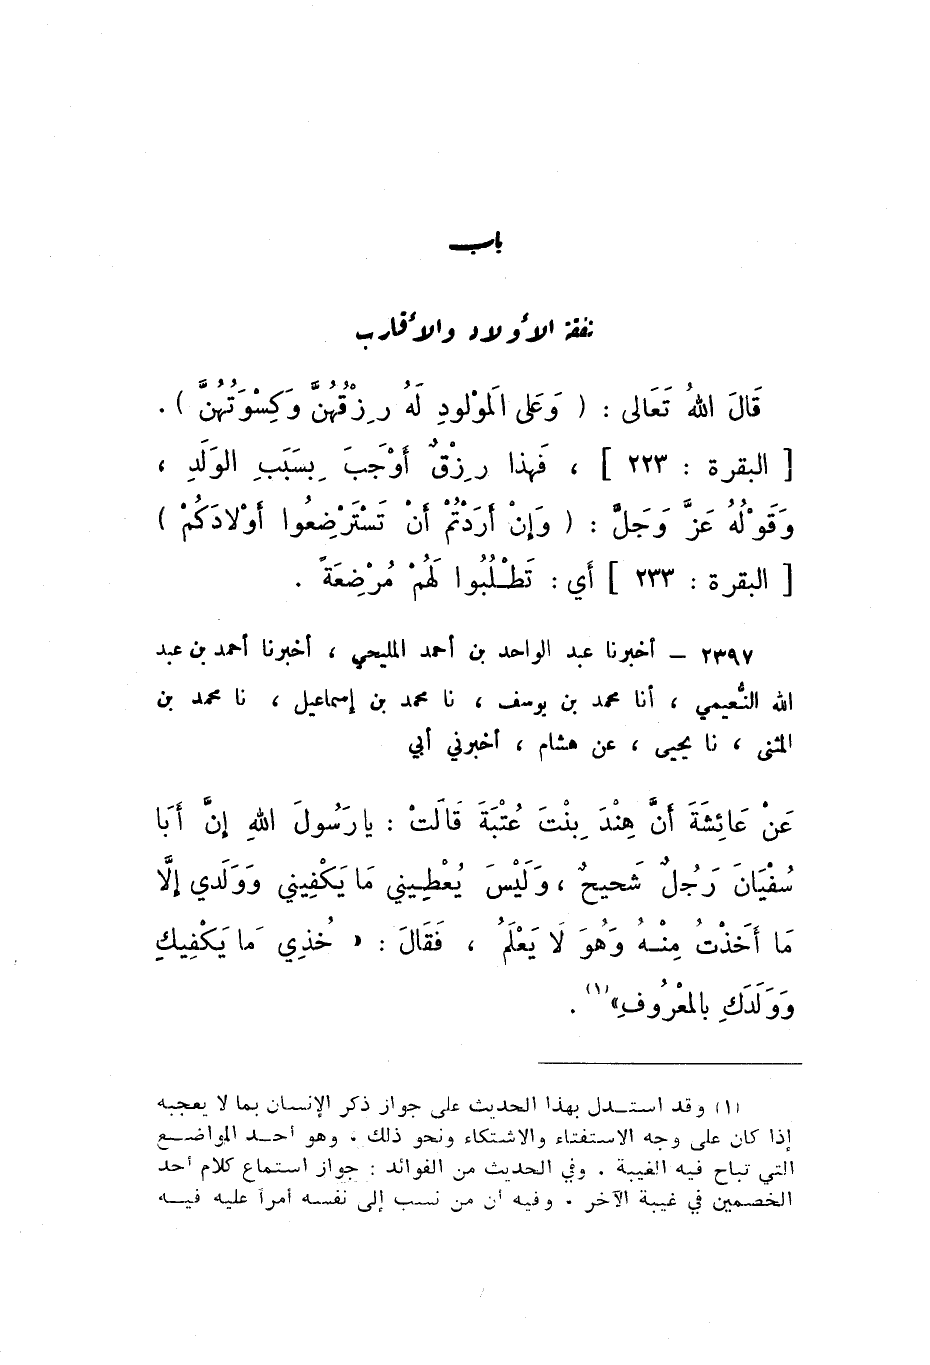 باب
نفقة الأولاد والأقارب
قَالَ اللهُ تَعَالى : ( وَعَلى المَوْلودِ لَهُ رِزْقُهُنَّ وَكِسْوَتُهُنَّ ) .
[ البقرة : ٢٢٣ ] ، فَهذا رِزْقٌ أَوْجَبَ بِسَبَبِ الوَلَدِ ،
وَقَوْلُهُ عَزَّ وَجَلَّ : ( وَإِنْ أَرَدْتُمْ أَنْ تَسْتَرْضِعُوا أَوْلادَكُمْ )
[ البقرة : ٢٣٣ ] أَي : تَطْلُبُوا لَهُمْ مُرْضِعَةً .
٢٣٩٧ – أخبرنا عبد الواحد بن أحمد المليحي ، أخبرنا أحمد بن عبد
الله النُّعيمي ، أنا محمد بن يوسف ، نا محمد بن إسماعيل ، نا محمد بن
المثنى ، نا يحيى ، عن هشام ، أخبرني أبي
عَنْ عَائِشَةَ أَنَّ هِنْدَ بِنْتَ عُتْبَةَ قَالَتْ : يا رَسُولَ اللهِ إِنَّ أَبَا
سُفْيَانَ رَجُلٌ شَحيحٌ ، وَلَيْسَ يُعْطِيني مَا يَكْفِيني وَوَلَدي إِلَّا
مَا أَخَذْتُ مِنْهُ وَهُوَ لَا يَعْلَمُ ، فَقَالَ : « خُذِي مَا يَكْفِيكِ
وَوَلَدَكِ بِالمَعْرُوفِ»(١) .
(١) وقد استدل بهذا الحديث على جواز ذكر الإنسان بما لا يعجبه
إذا كان على وجه الاستفتاء والاشتكاء ونحو ذلك . وهو أحد المواضع
التي تباح فيه الغيبة . وفي الحديث من الفوائد : جواز استماع كلام أحد
الخصمين في غيبة الآخر . وفيه أن من نسب إلى نفسه أمراً عليه فيه